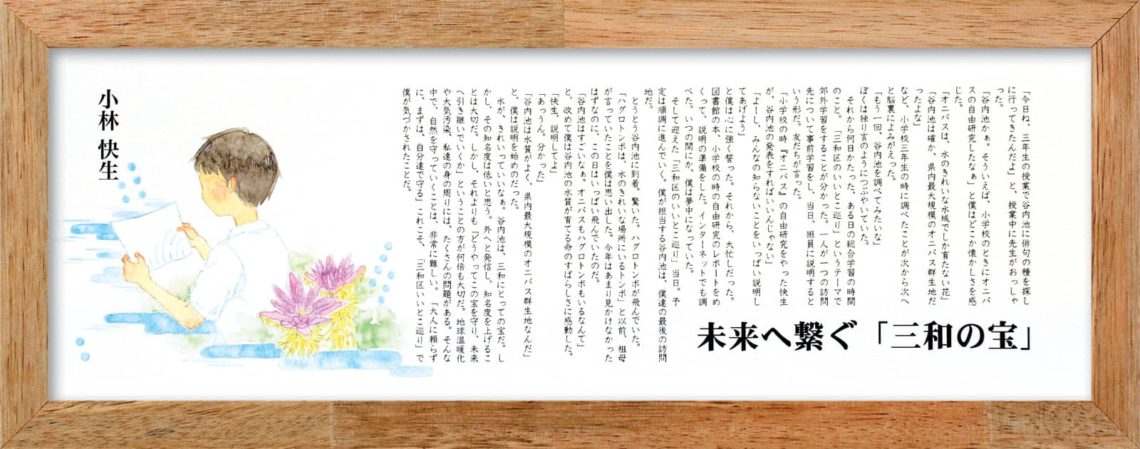 未来へ繋ぐ「三和の宝」
「今日ね、三年生の授業で谷内池に俳句の種を探し
に行ってきたんだよ」と、授業中に先生がおっしゃ
った。
「谷内池かぁ。そういえば、小学校のときにオニバ
スの自由研究したなぁ」と僕はどこか懐かしさを感
じた。
「オニバスは、水のきれいな水域でしか育たない花」
「谷内池は確か、県内最大規模のオニバス群生地だ
ったよな」
など、小学校三年生の時に調べたことが次から次へ
と脳裏によみがえって、
「もう一回、谷内池を調べてみたいな」
ぼくは独り言のようにつぶやいていた。
それから何日かたった、ある日の総合学習の時間
のこと。「三和区のいいとこ巡り」というテーマで
郊外学習をすることが分かった。一人が一つの訪問
先について事前学習をし、当日、班員に説明すると
いう形だ。友だちが言った。
「小学校の時『オニバス』の自由研究をやった快生
が、谷内池の発表をすればいいんじゃない」
「よーし、みんなの知らないことをいっぱい説明し
てあげよう」
と僕は心に強く誓った。それから、大忙しだった。
図書館の本、小学校の時の自由研究のレポートをめ
くって、説明の準備をした。インターネットでも調
べた。いつの間にか、僕は夢中になっていた。
そして迎えた「三和区のいいとこ巡り」当日。予
定は順調に進んでいく。僕が担当する谷内池は、僕達の最後の訪問
地だ。
とうとう谷内池に到着。驚いた。ハグロトンボが飛んでいた。
「ハグロトンボは、水のきれいな場所にいるトンボ」と以前、祖母
が言っていたことを僕は思い出した。今年はあまり見かけなかった
はずなのに、この日はいっぱい飛んでいたのだ。
「谷内池はすごいなぁ。オニバスもハグロトンボもいるなんて」
と、改めて僕は谷内池の水質が育てる命のすばらしさに感動した。
「快生、説明してよ」
「あっうん。分かった」
「谷内池は水質がよく、県内最大規模のオニバス群生地なんだ」
と、僕は説明を始めのだった。
水が、きれいっていいなぁ。谷内池は、三和にとっての宝だ。し
かし、その知名度は低いと思う。外へと発信し、知名度を上げるこ
とは大切だ。しかし、それよりも『どうやってこの宝を守り、未来
へ引き継いでいくか』ということの方が何倍も大切だ。地球温暖化
や大気汚染、私達の身の周りには、たくさんの問題がある。そんな
中で、自然を守っていくことは、非常に難しい。「大人に頼らず
に、まずは、自分達で守る」これこそ、「三和区いいとこ巡り」で
僕が気づかされたことだ。
小林 快生